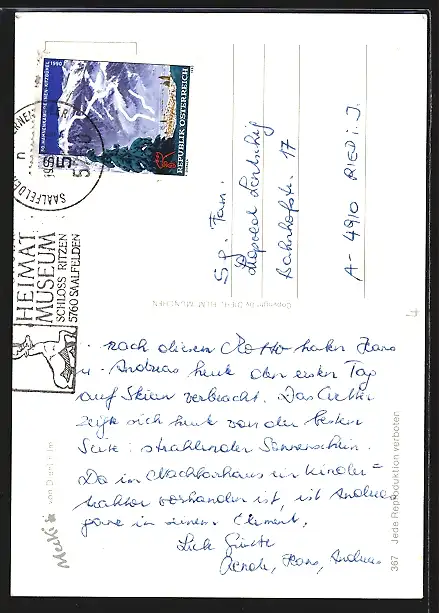 . nach diesem Motto haben Hans
u. Andreas heute den ersten Tag
auf Skiern verbracht. Das Wetter
zeigt sich heute von der besten
Seite: strahlender Sonnenschein.
Da im Nachbarhaus ein Kinder=
traktor vorhanden ist, ist Andreas
ganz in seinem Element.
Liebe Grüße
Hans, Andreas
S.g. Fam.
Leopold
Bahnhofstr. 17
A-4910 RIED i. J.
REPUBLIK ÖSTERREICH
1990
S5
SAALFELDEN
HEIMAT
MUSEUM
SCHLOSS RITZEN
5760 SAALFELDEN
Mecki
367 Jede Reproduktion verboten